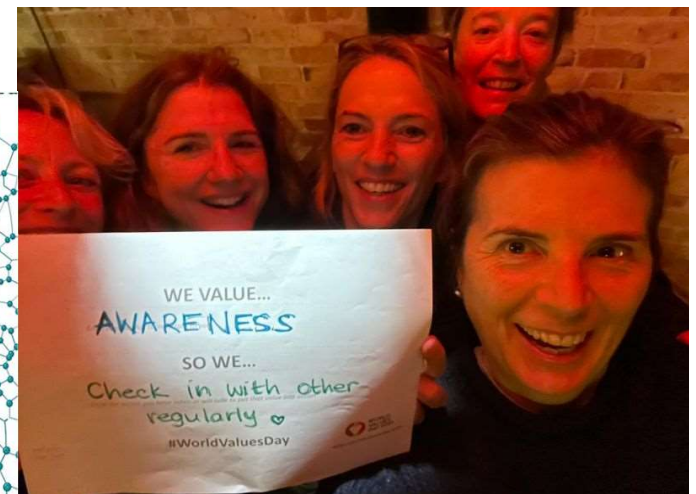 WE VALUE...
AWARENESS
SO WE...
Check in with other
regularly
#WorldValuesDay
WORLD
VALUES
DAY